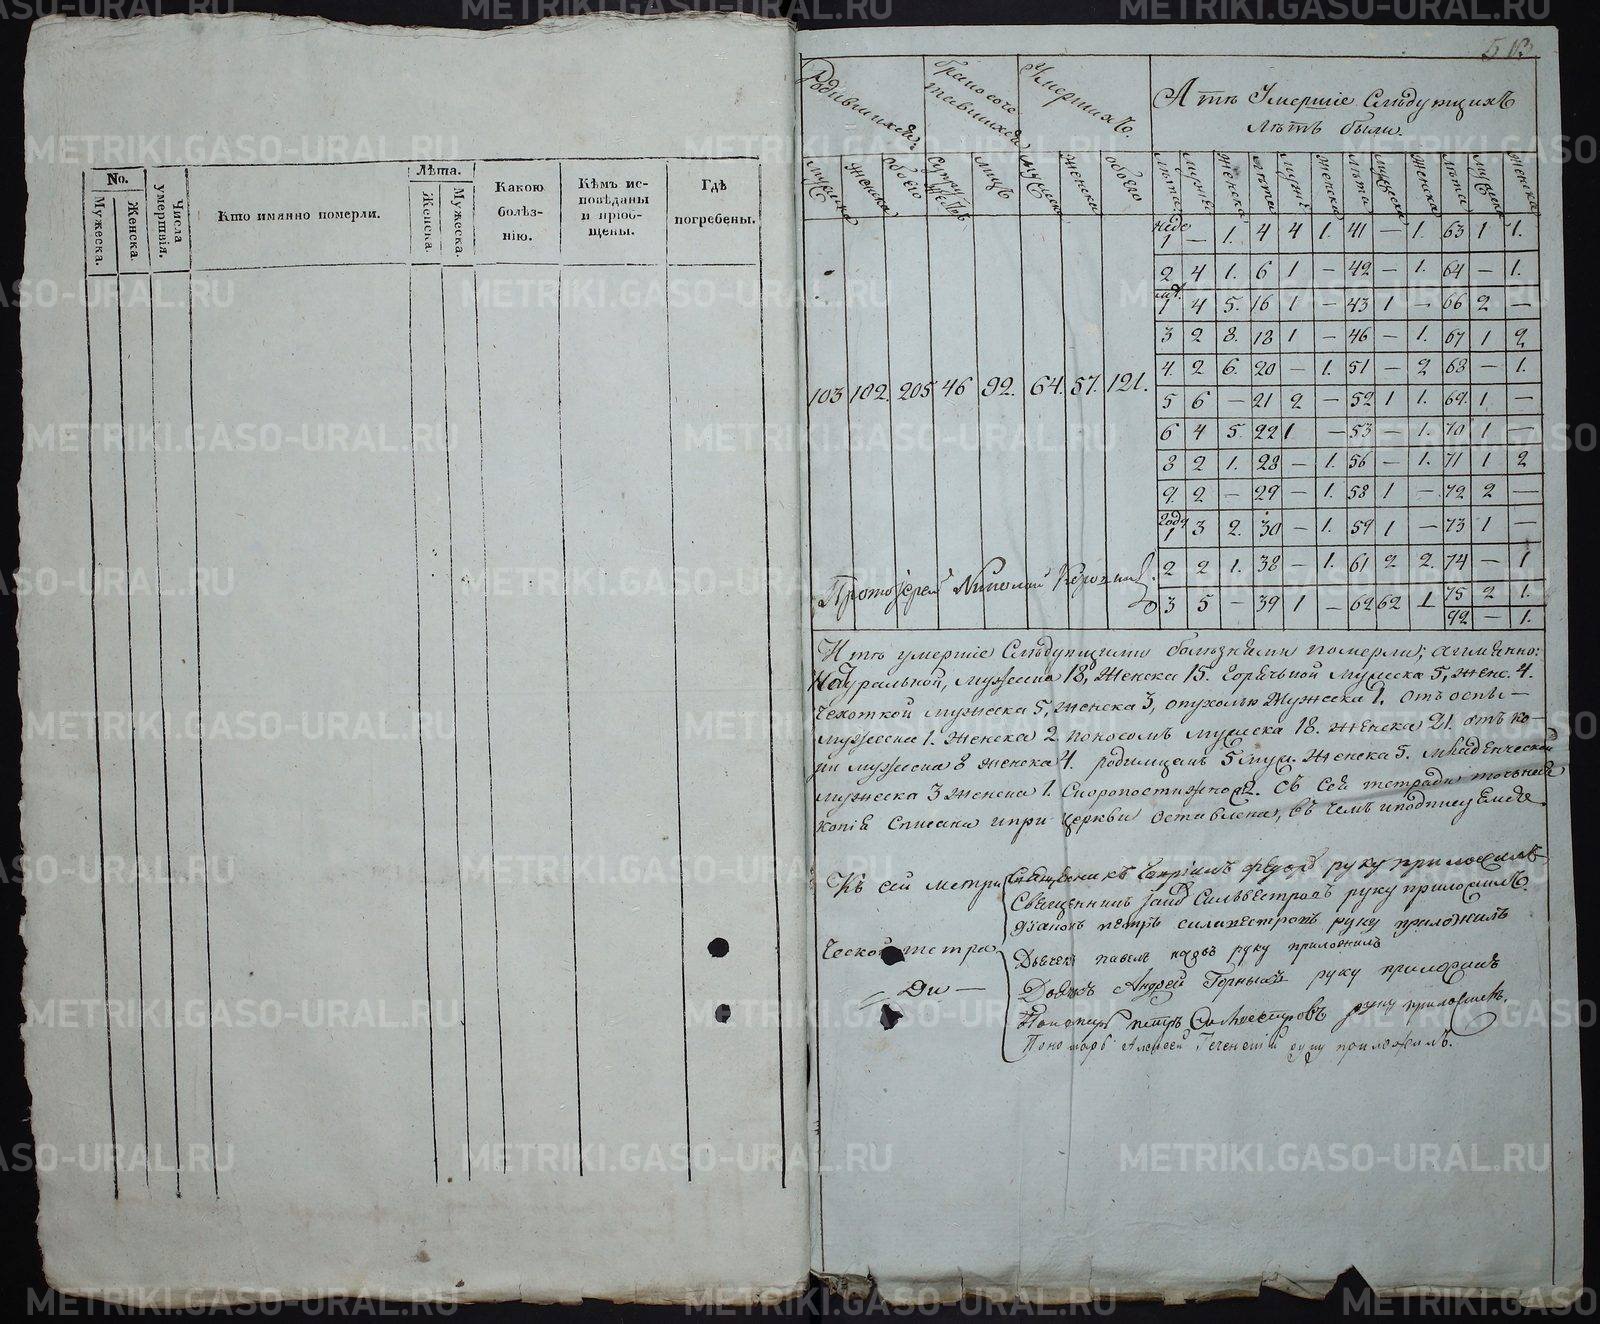 No.
Мужеска.
Женска.
Числа умертвія.
Кто имянно померли.
Лѣта.
Женска.
Мужеска.
Какою
болѣз-
нію.
Кѣмъ ис-
повѣданы
и пріоб-
щены.
Гдѣ
погребены.
Родившихся
Бракосоче
тавшихся
Умершихъ.
А тѣ Умершіе Слѣдующихъ
лѣтъ были.
мужска
женска
обоего
лицъ
мужеск
женска
обоего
лѣта
мужск
женска
лѣта
мужск
женска
лѣта
мужеска
женска
лѣта
мужеск
женска
неде
1 — 1. 4 4 1. 41 — 1. 63 1 1.
2 4 1. 6 1 — 42 — 1. 64 — 1.
1 4 5. 16 1 — 43 1 — 66 2 —
3 2 8. 18 1 — 46 — 1. 67 1 2
4. 2 6. 20 — 1. 51 — 2 68 — 1.
103 102. 205 46 92. 64. 57. 121.
5 6 — 21 2 — 52 1 1. 69. 1 —
6 4 5. 22 1 — 53 — 1. 70 1 —
8 2 1. 28 — 1. 56 — 1. 71 1 2
9. 2 — 29 — 1. 58 1 — 72 2 —
году
1 3 2. 30 — 1. 59 1 — 73 1 —
2 2 1. 38 — 1. 61 2 2. 74 — 1
3 5 — 39 1 — 62 62 1 75 2 1.
92 — 1.
Протоіерей Николай
И тѣ умершіе Слѣдующими болѣзнями померли; а именно:
Натуральной, мужеска 18, женска 15. горячкой мужеска 5, женс. 4.
чехоткой мужеска 5, женска 3, опухолью мужеска 1. отъ оспы —
мужеска 1. женска 2 поносомъ мужеска 18. женска 21. отъ ко—
ри мужеска 8 женска 4. родимцамъ 5 муж. женска 5. младенческой
мужеска 3 женска 1. Скоропостижно 2. Съ сей тетради точныя
копія Списана и при церкви оставлена, въ чемъ и подписуемся.
Къ сей метри
ческой тетра
ди —
Священникъ руку приложилъ
Священникъ Силвестровъ руку приложилъ.
діаконъ петръ силвестровъ руку приложилъ
Дьячекъ павелъ руку приложилъ
Дьячекъ Андрей Горныхъ руку приложилъ
Пономарь петръ Силвестровъ руку приложилъ.
Пономарь Алексей руку приложилъ.
METRIKI.GASO-URAL.RU